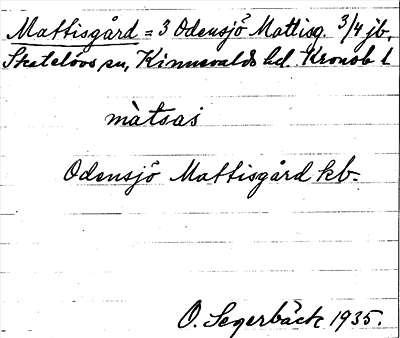 Mattisgård = 3 Odensjö Mattisg. 3/4 jb.
Skatelövs sn, Kinnevalds hd. Kronob. l
màtsas
Odensjö Mattisgård kb.
O. Segerbäck 1935.